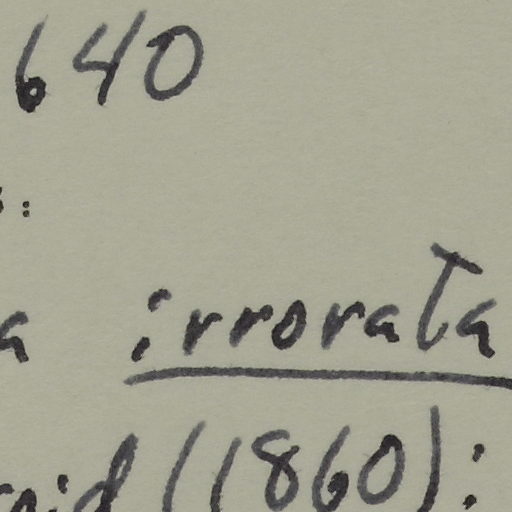 640
:
a irrorata
oid (1860):